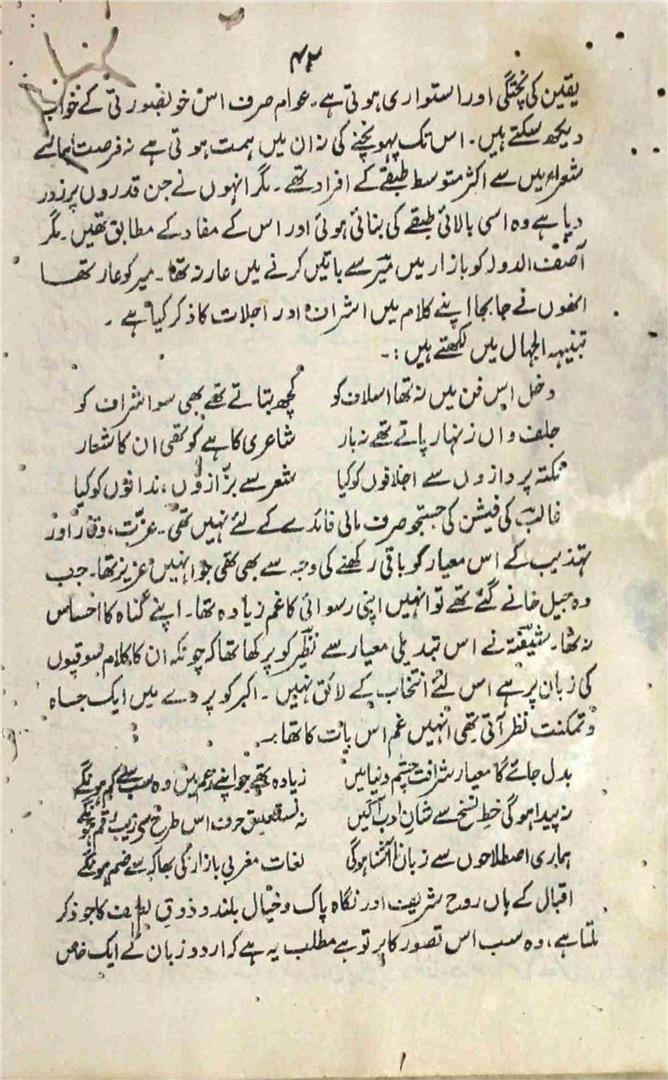 ۴۲
یقین کی پختگی اور استواری ہوتی ہے۔ عوام صرف اس خوبصورتی کے خواب
دیکھ سکتے ہیں۔ اس تک پہونچنے کی نہ ان میں ہمت ہوتی ہے نہ فرصت ہمارے
شعراء میں سے اکثر متوسط طبقے کے افراد تھے۔ مگر انہوں نے جن قدروں پر زور
دیا ہے وہ اسی بالائی طبقے کی بنائی ہوئی اور اس کے مفاد کے مطابق تھیں۔ مگر
آصف الدولہ کو بازار میں میرؔ سے باتیں کرنے میں عار نہ تھا۔ میر کو عار تھا
انھوں نے جا بجا اپنے کلام میں اشراف اور اجلاف کا ذکر کیا ہے۔
تنبیہہ الجہال میں لکھتے ہیں:۔
دخل اس فن میں نہ تھا اسلاف کو کچھ بتاتے تھے بھی سو اشراف کو
جلف واں زنہار پاتے تھے نہ بار شاعری کا ہے کو تھی ان کا شعار
نکتہ پردازوں سے اجلافوں کو کیا شعر سے بزّازوں، ندافوں کو کیا
غالبؔ کی فیشن کی جستجو صرف مالی فائدے کے لئے نہیں تھی۔ عزّت، وقار اور
تہذیب کے اس معیار کو باقی رکھنے کی وجہ سے بھی تھی جو انہیں عزیز تھا۔ جب
وہ جیل خانے گئے تھے تو انہیں اپنی رسوائی کا غم زیادہ تھا۔ اپنے گناہ کا احساس
نہ تھا۔ شیفتہؔ نے اس تبدیلی معیار سے نظیرؔ کو پرکھا تھا کہ چونکہ ان کا کلام سوقیوں
کی زبان پر ہے اس لئے انتخاب کے لائق نہیں۔ اکبر کو پردے میں ایک جاہ
و تمکنت نظر آتی تھی انہیں غم اس بات کا تھا:۔
بدل جائے گا معیار شرافت چشم دنیا میں زیادہ تھے جو اپنے زعم میں وہ سب سے کم ہونگے
نہ پیدا ہوگی خط نسخ سے شان ادب آگیں نہ نستعلیق حرف اس طرح سے زیب رقم ہونگے
ہماری اصطلاحوں سے زباں ناآشنا ہوگی لغات مغربی بازار کی بھاکا سے ضم ہونگے
اقبال کے ہاں روح شریعت اور نگاہ پاک و خیال بلند و ذوقِ لطیف کا جو ذکر
ملتا ہے، وہ سب اس تصور کا پرتو ہے مطلب یہ ہے کہ اردو زبان نے ایک خاص